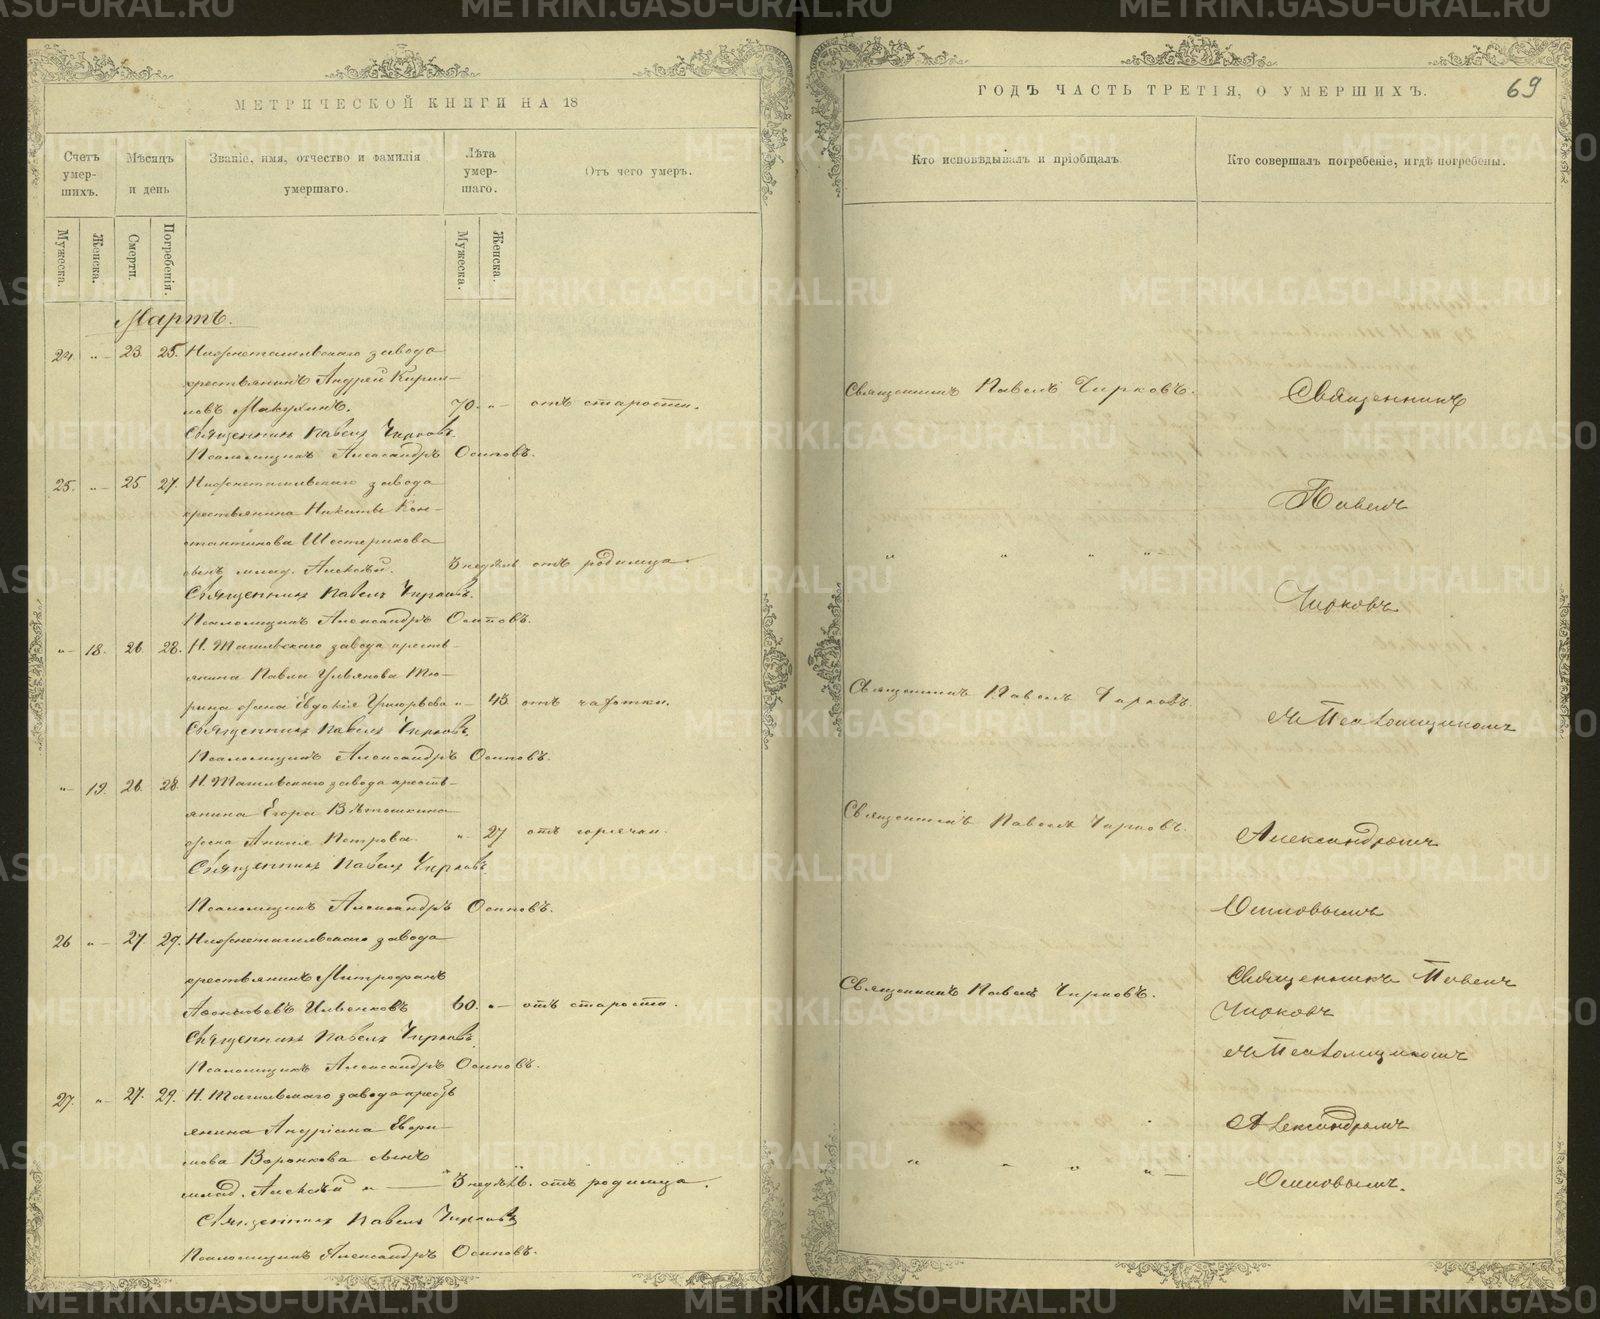 МЕТРИЧЕСКОЙ КНИГИ НА 18
Счетъ умер-шихъ.
Мѣсяцъ и день
Званіе, имя, отчество и фамилія умершаго.
Лѣта умер-шаго.
Отъ чего умеръ.
Мужеска.
Женска.
Смерти.
Погребенія.
Мужеска.
Женска.
Мартъ.
24 „ 23. 25. Нижнетагильскаго завода
крестьянинъ Андрей Кирил-
ловъ Макухинъ. 70. „ отъ старости.
Священникъ Павелъ Чирковъ.
Псаломщикъ Александръ Осиповъ.
25. „ 25 27. Нижнетагильскаго завода
крестьянина Никиты Кон-
стантинова Шестерикова
сынъ млад. Алексѣй. 3 недѣль отъ родимца.
Священникъ Павелъ Чирковъ.
Псаломщикъ Александръ Осиповъ.
„ 18. 26. 28. Н. Тагильскаго завода кресть-
янина Павла Ульянова Тю-
рина жена Евдокія Григорьева „ 45 отъ чахотки.
Священникъ Павелъ Чирковъ.
Псаломщикъ Александръ Осиповъ.
„ 19. 26. 28. Н. Тагильскаго завода кресть-
янина Егора Вѣтошкина
жена Анисія Петрова. „ 27 отъ горячки.
Священникъ Павелъ Чирковъ
Псаломщикъ Александръ Осиповъ.
26 „ 27. 29. Нижнетагильскаго завода
крестьянинъ Митрофанъ
Ивенковъ 60. „ отъ старости.
Священникъ Павелъ Чирковъ.
Псаломщикъ Александръ Осиповъ.
27. „ 27. 29. Н. Тагильскаго завода крест
янина Андріана Ефри-
мова Воронкова сынъ
млад. Алексѣй „ 3 недѣль. отъ родимца.
Священникъ Павелъ Чирковъ
Псаломщикъ Александръ Осиповъ.
ГОДЪ ЧАСТЬ ТРЕТІЯ, О УМЕРШИХЪ.
69
Кто исповѣдывалъ и пріобщалъ.
Кто совершалъ погребеніе, и гдѣ погребены.
Священникъ Павелъ Чирковъ.
„ „ „ „
Священникъ Павелъ Чирковъ.
Священникъ Павелъ Чирковъ.
Священникъ Павелъ Чирковъ.
„ „ „ „
Священникъ
Павелъ
Чирковъ
съ Псаломщикомъ
Александромъ
Осиповымъ
Священникъ Павелъ
Чирковъ
съ Псаломщикомъ
Александромъ
Осиповымъ.
METRIKI.GASO-URAL.RU